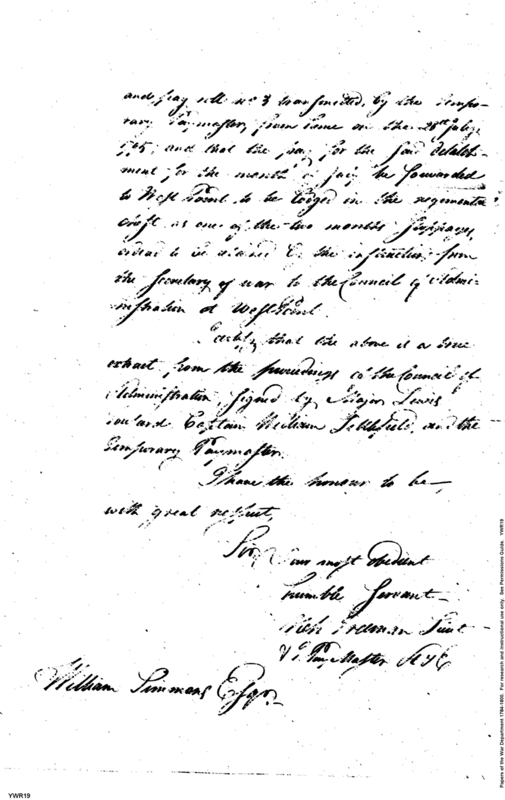 and pay roll no 3 transmitted, by the tempo-
rary Paymaster, from same on the 28th July
and that the pay for the said detach-
ment for the month be forwarded
to West Point to be lodged in the regimental
chest as one of the two months stoppages,
to be retained the instructions from
the Secretary of war to the Council of Admi-
nistration at West Point.
Certify that the above is a true
extract from the proceedings of the Council of
Administration, signed by Major Lewis
Captain William Littlefield, and the
temporary Paymaster.
I have the honour to be
with great respect,
Sir your most obedient
humble Servant
Lieut
Pay Master
William Simmons Esqr.
YWR19
Papers of the War Department 1784-1800. For research and instructional use only. See Permissions Guide. YWR19